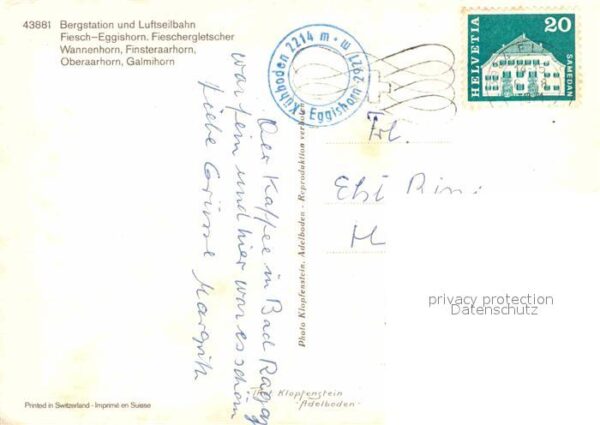 43881 Bergstation und Luftseilbahn
Fiesch-Eggishorn. Fieschergletscher
Wannenhorn, Finsteraarhorn,
Oberaarhorn, Galmihorn
Kühboden 2214 m · Eggishorn 2927 m
HELVETIA
20
SAMEDAN
Der Kaffee in Bad Ragaz
war fein und hier war es schön
Liebe Grüsse Margrith
Photo Klopfenstein, Adelboden - Reproduktion verboten
Frl.
Elsi
privacy protection
Datenschutz
Phot Klopfenstein
- Adelboden -
Printed in Switzerland - Imprimé en Suisse